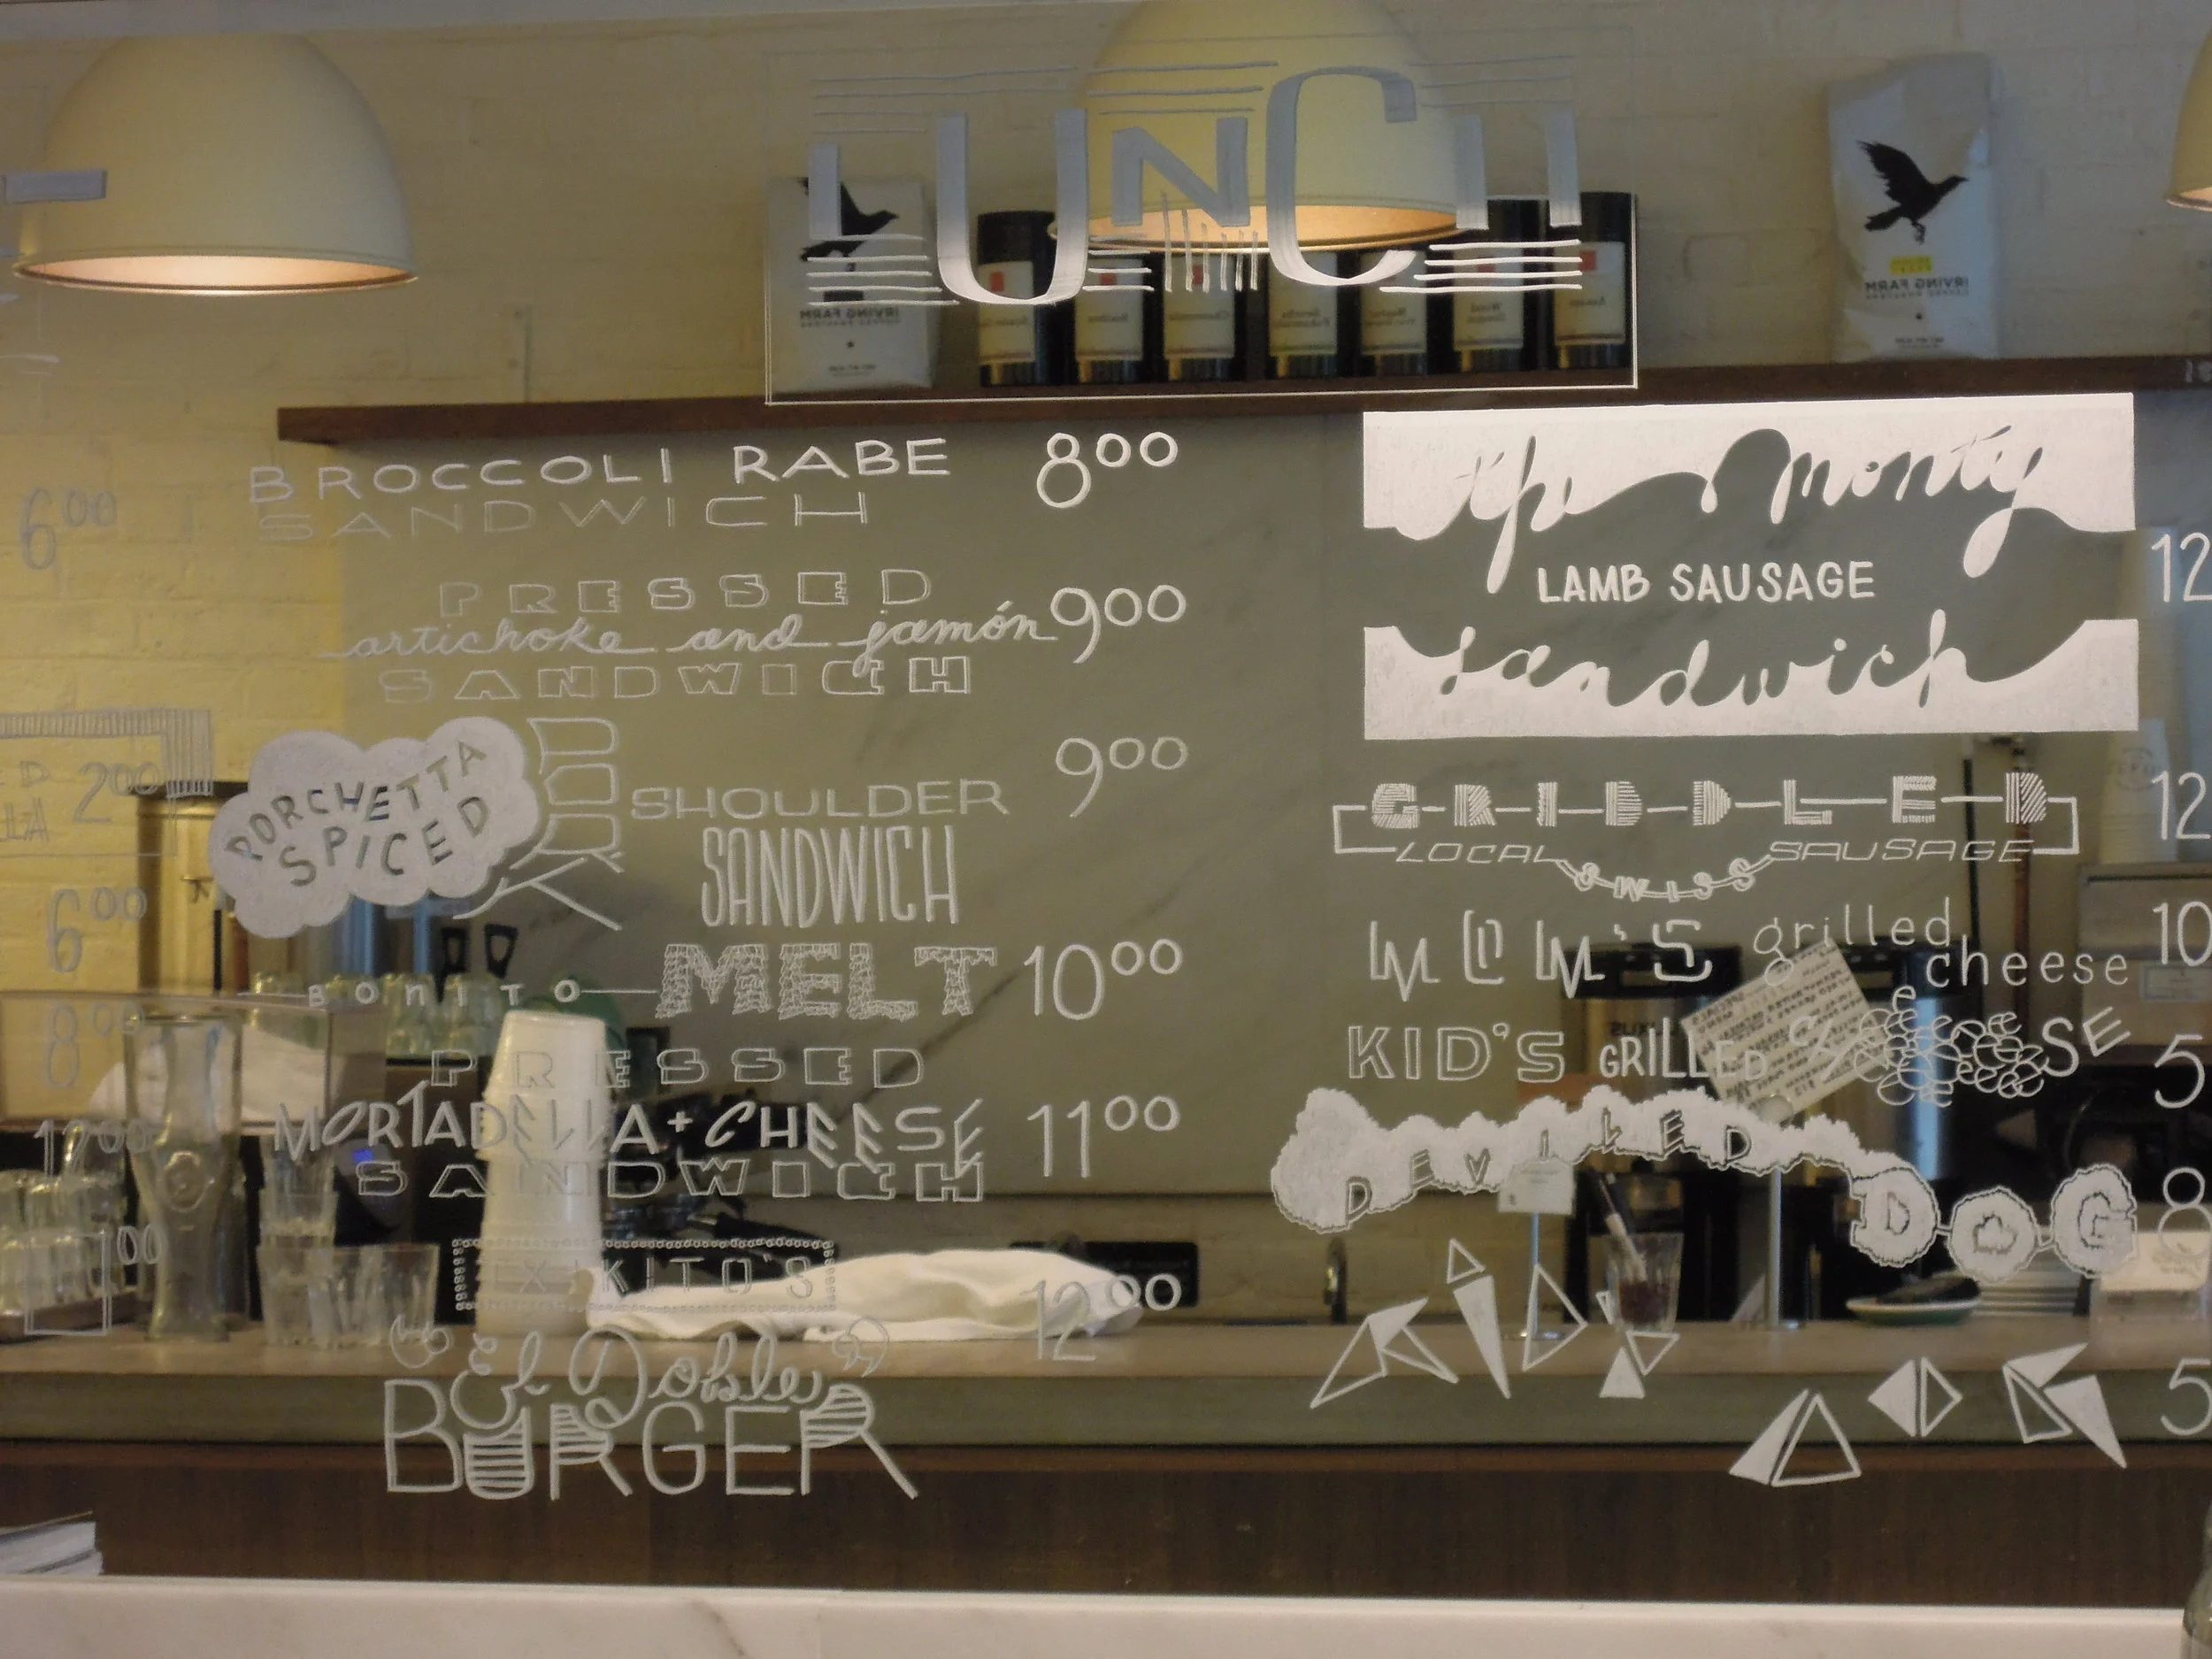 LUNCH
BROCCOLI RABE 8⁰⁰
SANDWICH
PRESSED
artichoke and jamón 9⁰⁰
SANDWICH
PORCHETTA
SPICED
PORK SHOULDER 9⁰⁰
SANDWICH
BONITO MELT 10⁰⁰
PRESSED
MORTADELLA + CHEESE 11⁰⁰
SANDWICH
EXKITO'S 12⁰⁰
"El Doble"
BURGER
the monty
LAMB SAUSAGE 12
sandwich
GRIDDLED 12
LOCAL SWISS SAUSAGE
MOM'S grilled cheese 10
KID'S GRILLED CHEESE 5
DEVILED DOG 8
KID'S DOG 5
6⁰⁰
2⁰⁰
6⁰⁰
8⁰⁰
12⁰⁰
IRVING FARM
IRVING FARM